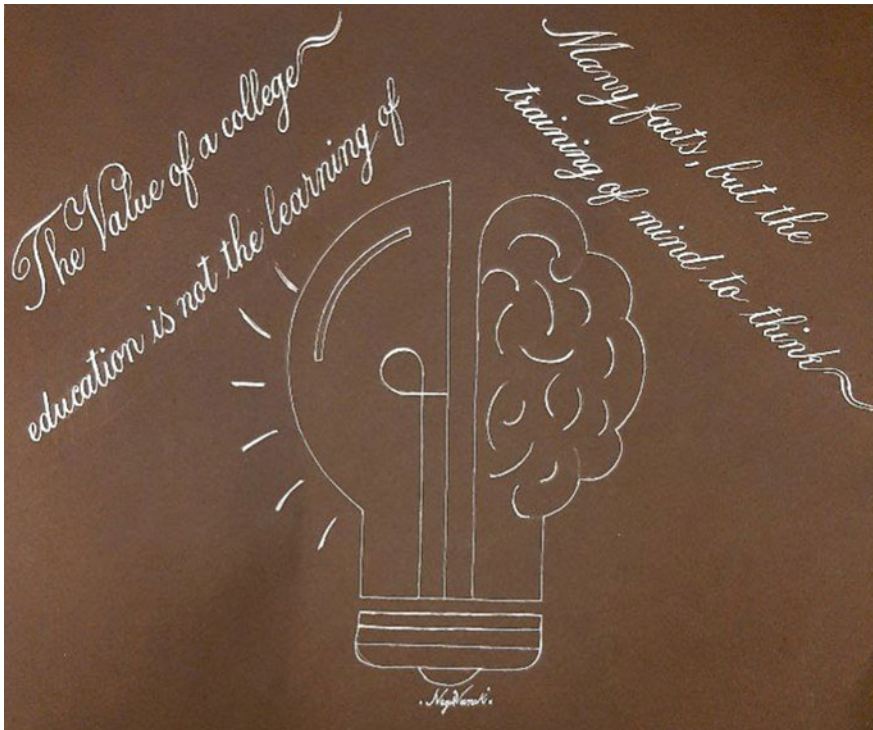 The Value of a college
education is not the learning of
Many facts, but the
training of mind to think